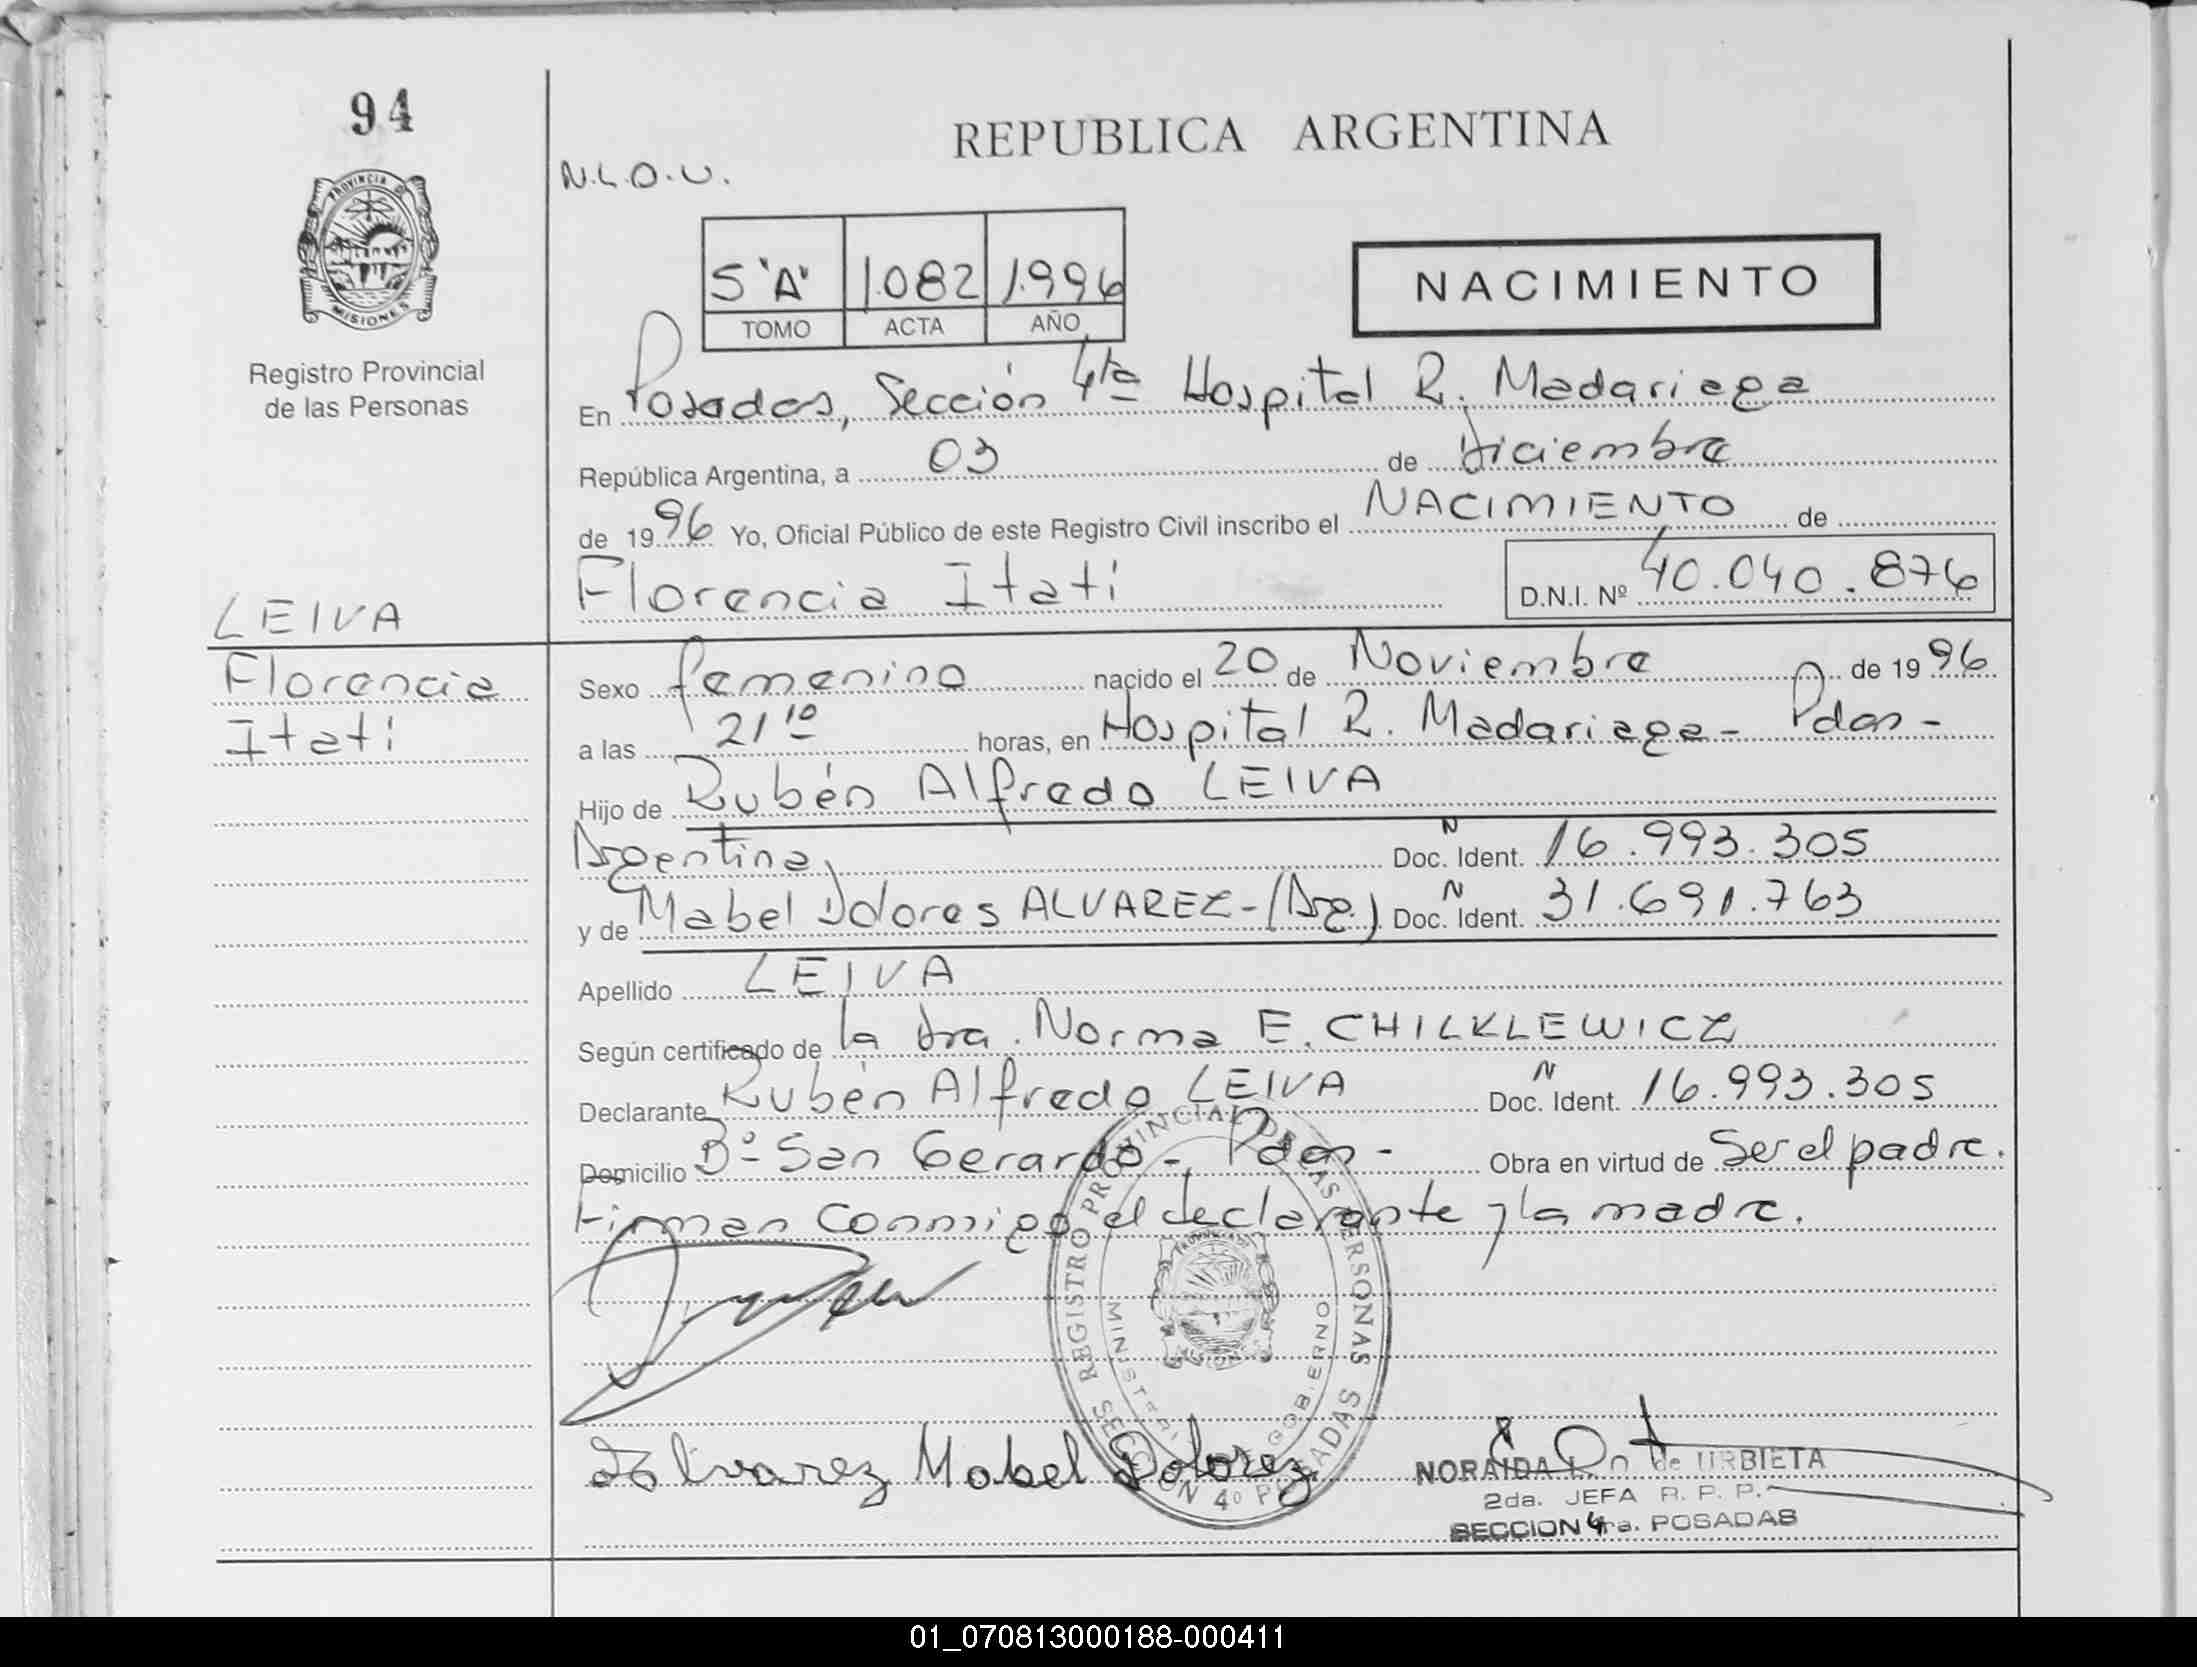 94
REPUBLICA ARGENTINA
N.L.O.U.
PROVINCIA D
MISIONES
5 "A" 1.082 1.996
TOMO ACTA AÑO
NACIMIENTO
Registro Provincial
de las Personas
En Posadas, Sección 4ta Hospital R. Madariaga
República Argentina, a 03 de Diciembre
de 1996 Yo, Oficial Público de este Registro Civil inscribo el NACIMIENTO de
Florencia Itatí D.N.I. Nº 40.040.876
LEIVA
Florencia
Itatí
Sexo femenino nacido el 20 de Noviembre de 1996
a las 21 10 horas, en Hospital R. Madariaga - Pdas -
Hijo de Rubén Alfredo LEIVA
Argentina, Doc. N Ident. 16.993.305
y de Mabel Dolores ALVAREZ - (Arg.) Doc. N Ident. 31.691.763
Apellido LEIVA
Según certificado de la Dra. Norma E. CHILKLEWICZ
Declarante Rubén Alfredo LEIVA Doc. N Ident. 16.993.305
Domicilio Bº San Gerardo - Pdas - Obra en virtud de Ser el padre.
Firman conmigo el declarante y la madre.
REGISTRO PROVINCIAL DE LAS PERSONAS
MINISTERIO GOBIERNO
SECCION 4º POSADAS
Alvarez Mabel Dolorez
NORAIDA de URBIETA
2da. JEFA R. P. P.
SECCION 4ra. POSADAS
01_070813000188-000411